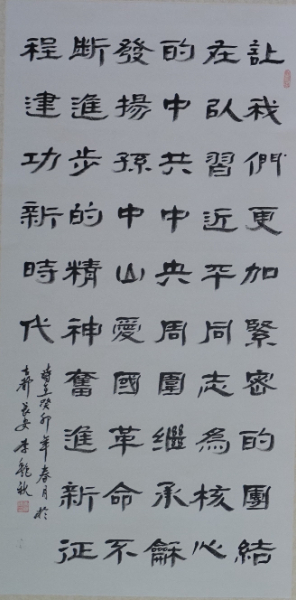 让我們更加緊密的團結
在以習近平同志為核心
的中共中央周圍繼承龢
發揚孫中山愛國革命不
断進步的精神奮進新征
程建功新時代
時在癸卯年春月於
古都長安李秋